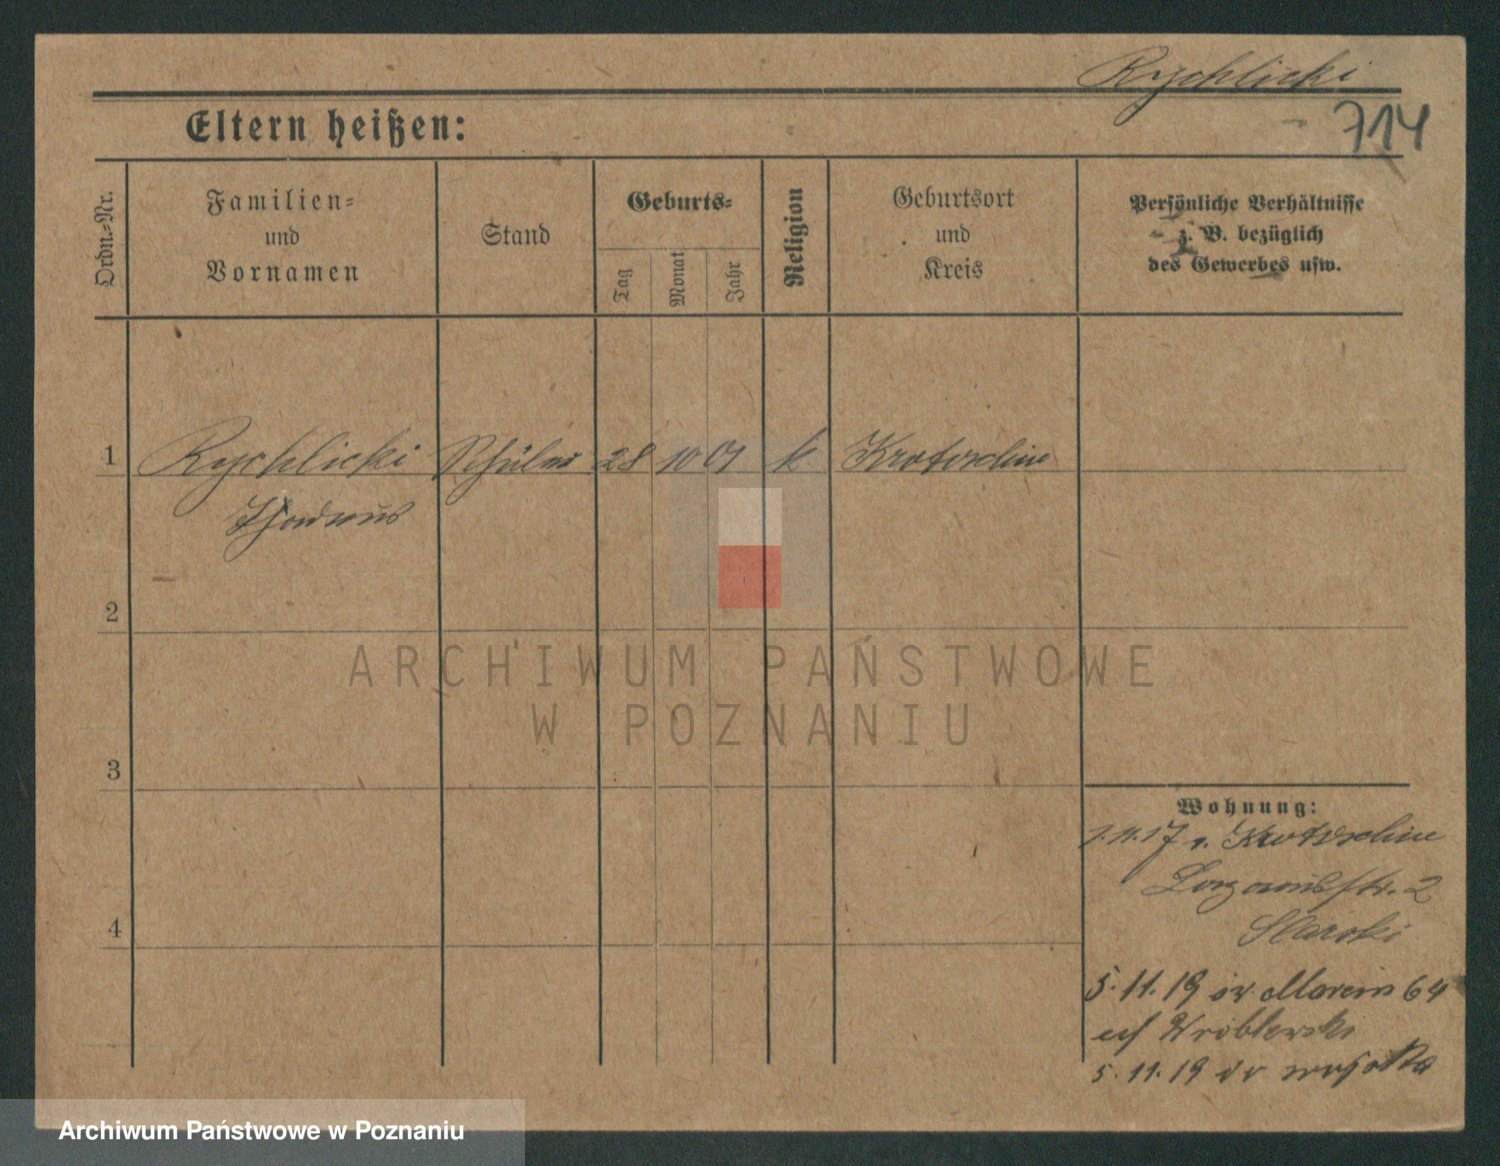 Rychlicki
714
Eltern heißen:
Ordn.-Nr.
Familien-
und
Vornamen
Stand
Geburts-
Tag
Monat
Jahr
Religion
Geburtsort
und
Kreis
Persönliche Verhältnisse
z. B. bezüglich
des Gewerbes usw.
1 Rychlicki Schüler 28 10 01 k Krotoschin
Thadäus
2
ARCHIWUM PAŃSTWOWE
W POZNANIU
3
Wohnung:
1.11.17 v. Krotoschin
str. 2
4
5.11.19 St. Marcin 64
Wróblewski
5.11.19
Archiwum Państwowe w Poznaniu